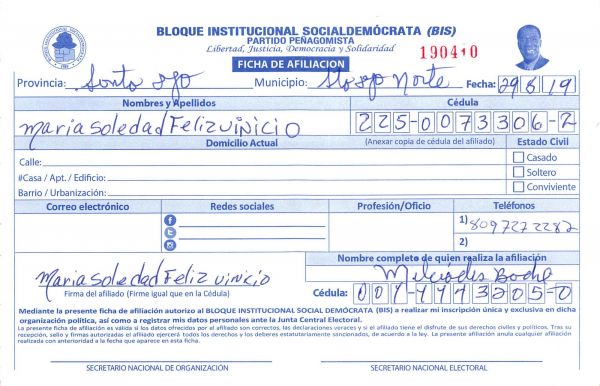 BLOQUE INSTITUCIONAL SOCIALDEMÓCRATA (BIS)
PARTIDO PEÑAGOMISTA
Libertad, Justicia, Democracia y Solidaridad
190410
FICHA DE AFILIACION
Provincia: Santo Dgo Municipio: Sto Dgo Norte Fecha: 29/6/19
Nombres y Apellidos Cédula
Maria Soledad Feliz vinicio 225-0073306-2
Domicilio Actual (Anexar copia de cédula del afiliado) Estado Civil
Calle: Casado
#Casa / Apt. / Edificio: Soltero
Barrio / Urbanización: Conviviente
Correo electrónico Redes sociales Profesión/Oficio Teléfonos
1) 8097272282
2)
Nombre completo de quien realiza la afiliación
Maria Soledad Feliz vinicio Melciades
Firma del afiliado (Firme igual que en la Cédula) Cédula:
Mediante la presente ficha de afiliación autorizo al BLOQUE INSTITUCIONAL SOCIAL DEMÓCRATA (BIS) a realizar mi inscripción única y exclusiva en dicha
organización política, así como a registrar mis datos personales ante la Junta Central Electoral.
La presente ficha de afiliación es válida si los datos ofrecidos por el afiliado son correctos, las declaraciones veraces y si el afiliado tiene el disfrute de sus derechos civiles y políticos. Tras su
recepción, sello y firmas autorizadas el afiliado ejercerá todos los derechos y los deberes estatutariamente sancionados, de acuerdo a la ley. La presente afiliación anula cualquier afiliación
realizada con anterioridad a la fecha que aparece en esta ficha.
SECRETARIO NACIONAL DE ORGANIZACIÓN SECRETARIO NACIONAL ELECTORAL